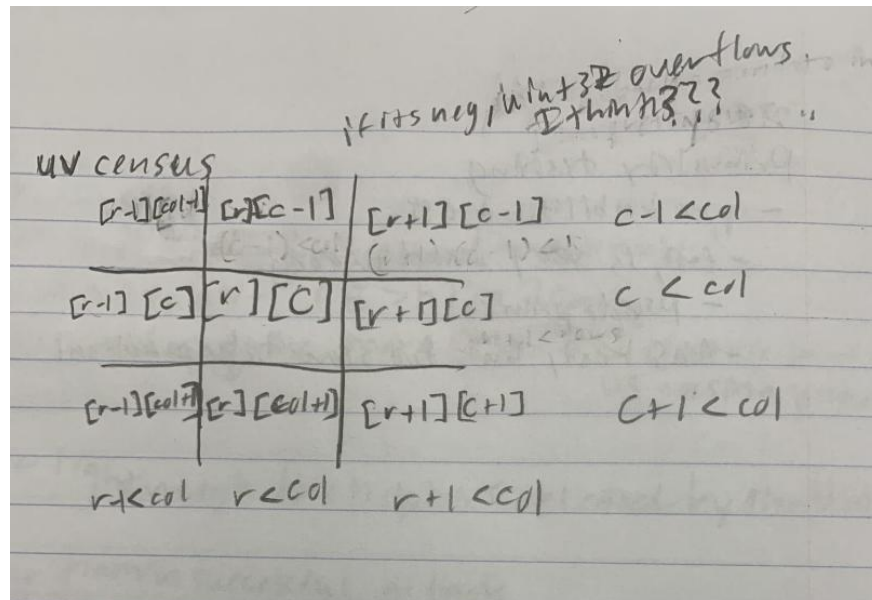 if its neg, uint32 overflows.
I think???
uv census
[r-1][col-1] [r][c-1] [r+1][c-1] c-1 < col
[r-1] [c] [r] [C] [r+1][c] c < col
[r-1][col+1] [r][col+1] [r+1][c+1] C+1 < col
r-1<col r<col r+1<col